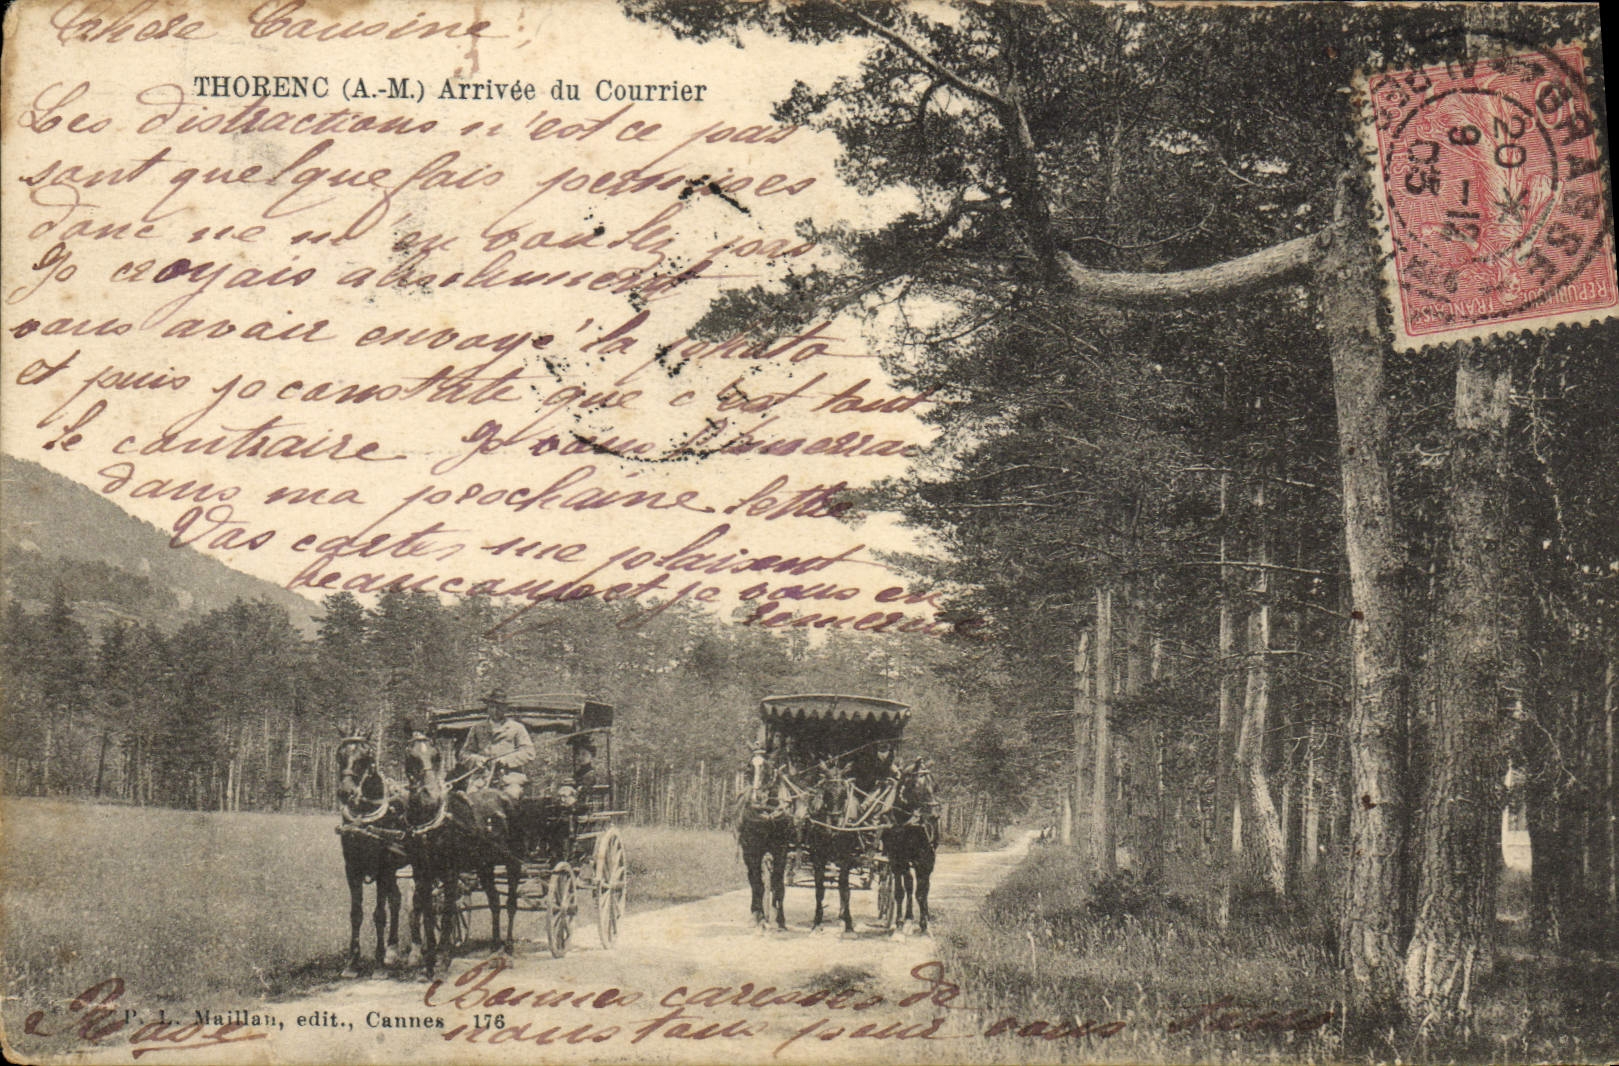 Chère Cousine,
THORENC (A.-M.) Arrivée du Courrier
Les distractions n'est ce pas
sont quelquefois permises
donc ne m'en voulez pas
Je croyais absolument
vous avoir envoyé la photo
et puis je constate que c'est tout
le contraire Je vous l'enverrai
dans ma prochaine lettre
Vos cartes me plaisent
beaucoup et je vous en
remercie
Bonnes caresses de
nous tous pour vous
P. L. Maillan, edit., Cannes 176
GRASSE
20
9 - 12
05
REPUBLIQUE FRANÇAISE